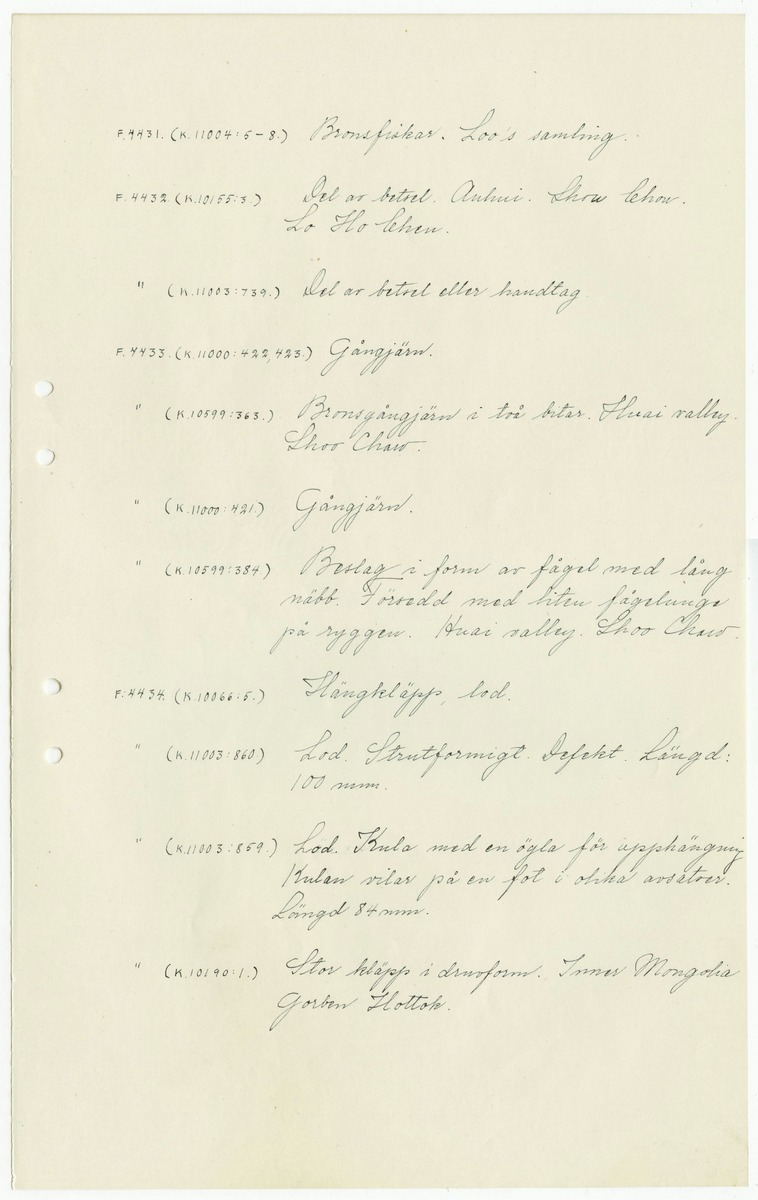 F.4431. (K.11004:5-8.) Bronsfiskar. Loo's samling.
F.4432. (K.10155:3.) Del av betsel. Anhui. Shou Chou.
Lo Ho Chen.
" (K.11003:739.) Del av betsel eller handtag.
F.4433. (K.11000:422,423.) Gångjärn.
" (K.10599:363.) Bronsgångjärn i två bitar. Huai valley.
Shoo Chaw.
" (K.11000:421.) Gångjärn.
" (K.10599:384.) Beslag i form av fågel med lång
näbb. Försedd med liten fågelunge
på ryggen. Huai valley. Shoo Chaw.
F.4434. (K.10066:5.) Hängkläpp, lod.
" (K.11003:860) Lod. Strutformigt. Defekt. Längd:
100 mm.
" (K.11003:859.) Lod. Kula med en ögla för upphängning
Kulan vilar på en fot i olika avsatser.
Längd 84 mm.
" (K.10190:1.) Stor kläpp i druvform. Inner Mongolia
Gorben Hottok.